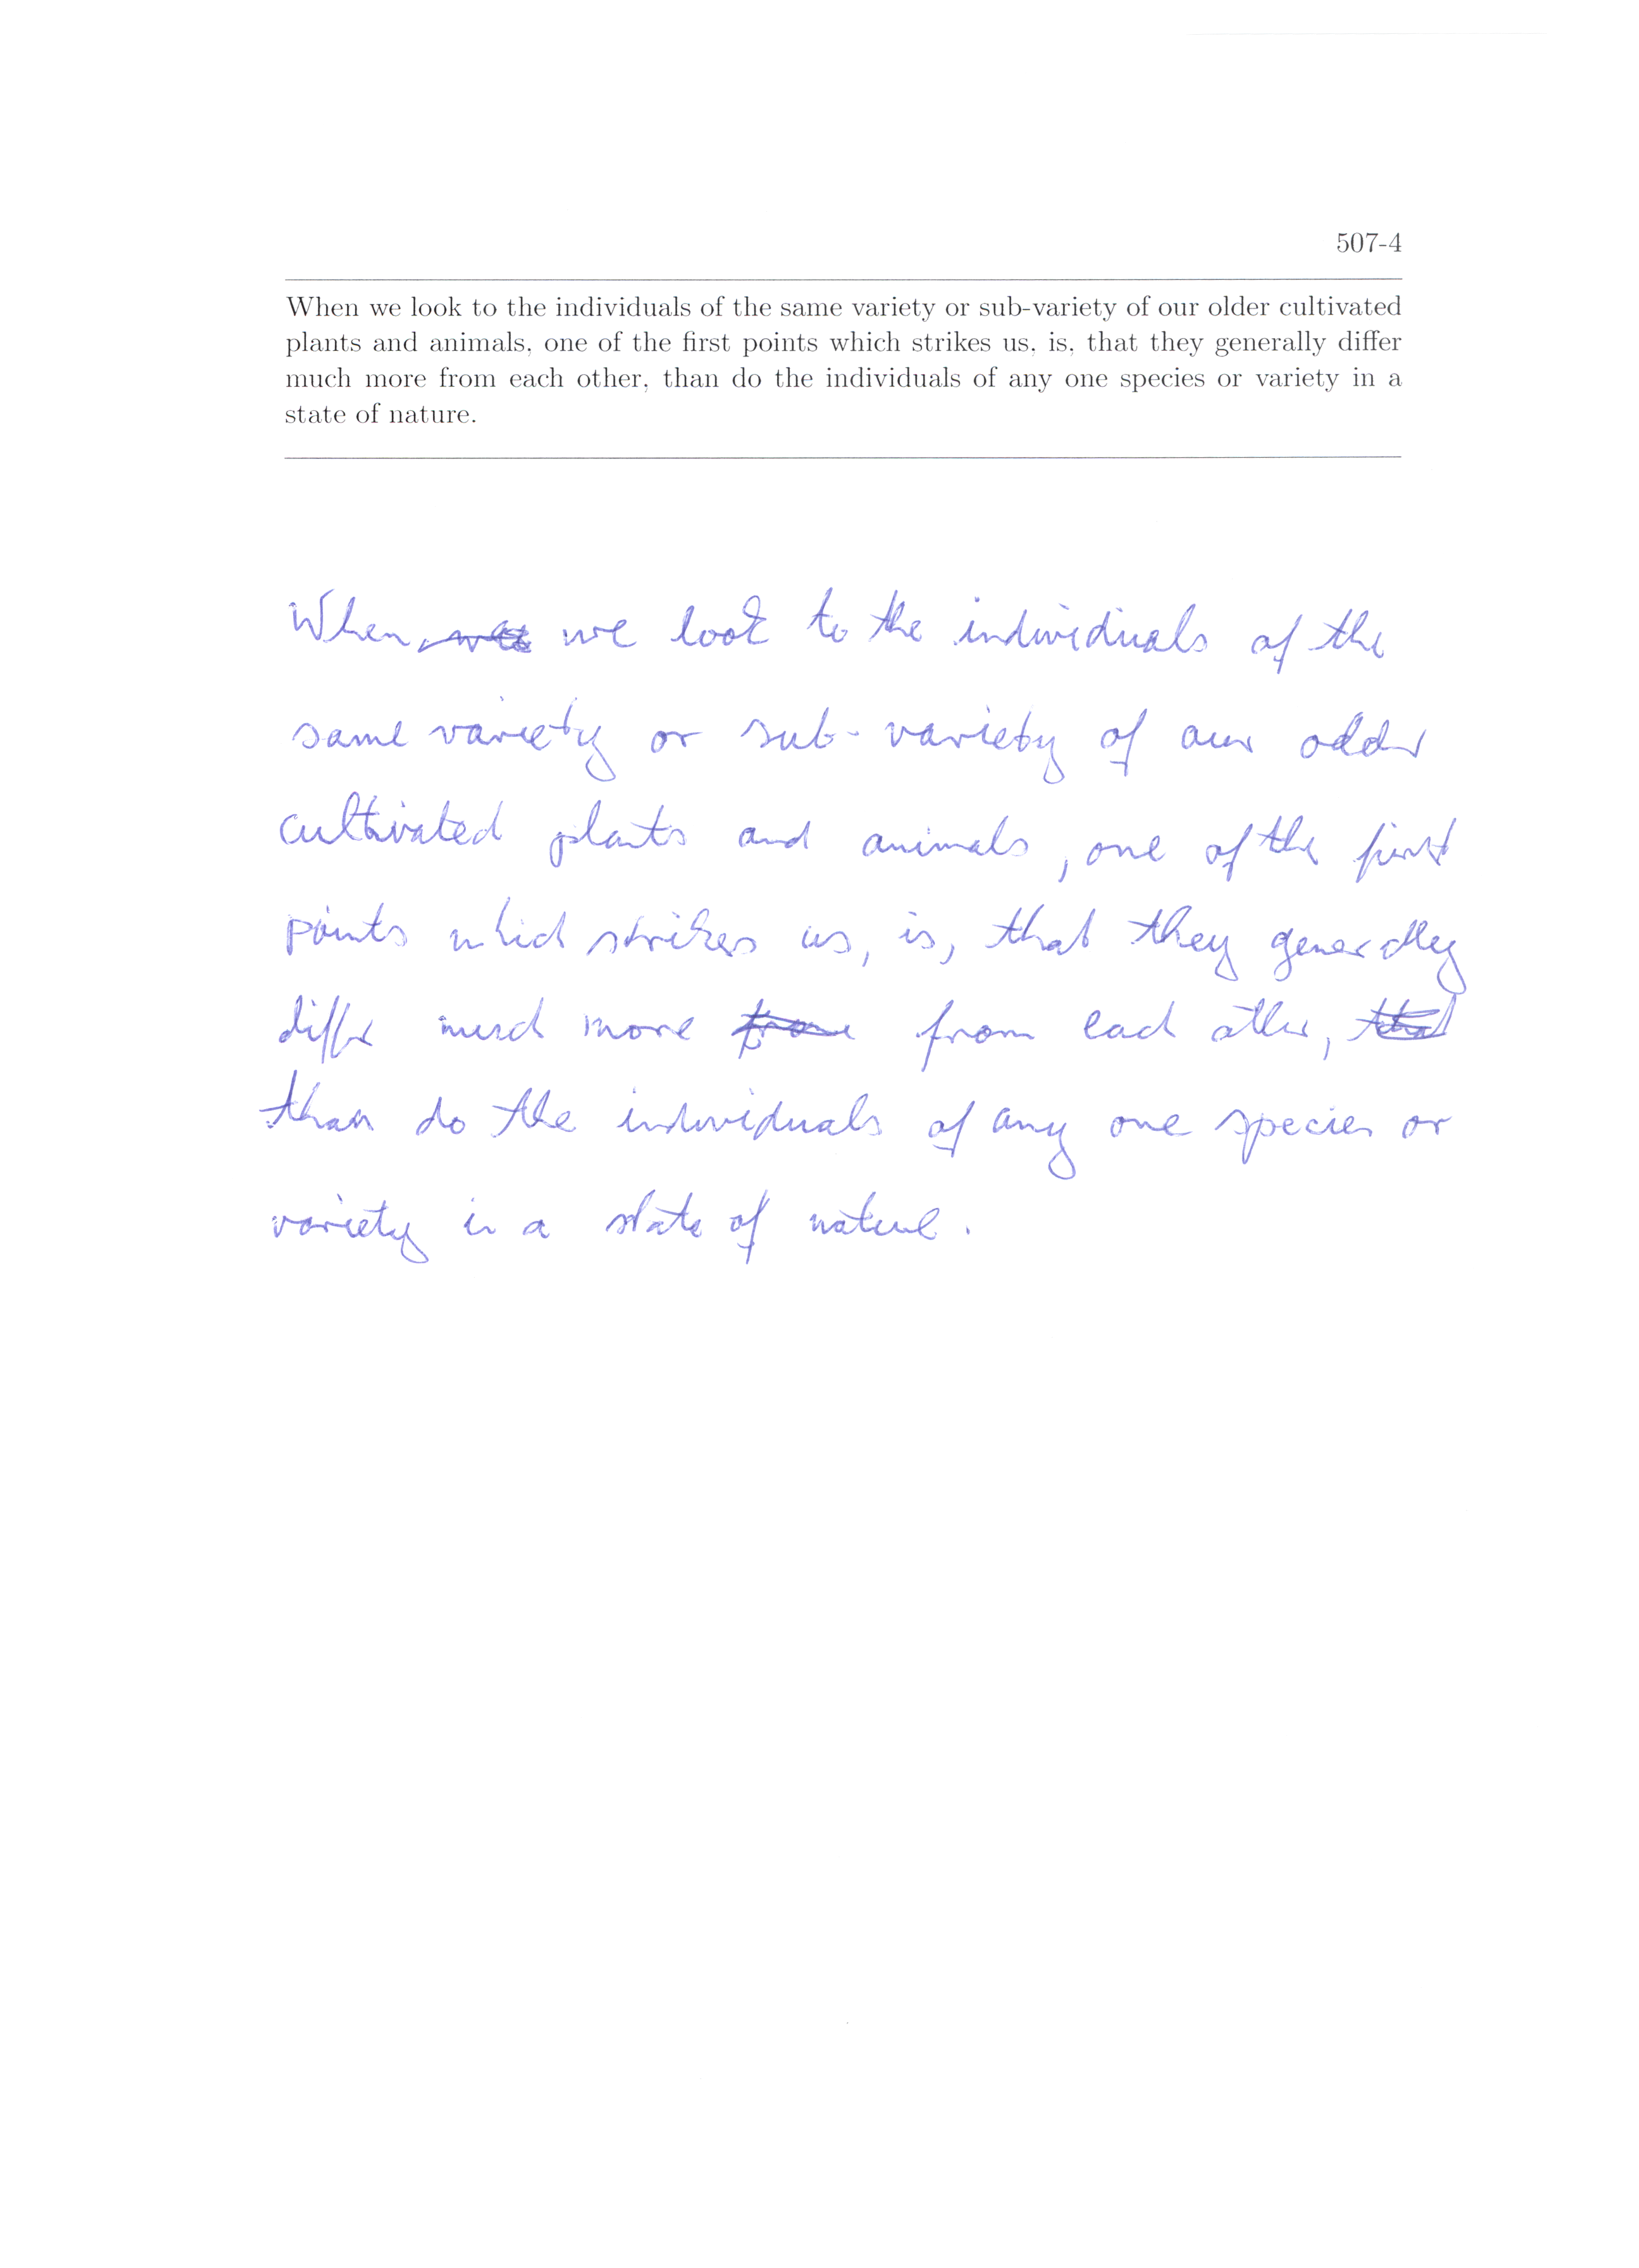 507-4
When we look to the individuals of the same variety or sub-variety of our older cultivated
plants and animals, one of the first points which strikes us, is, that they generally differ
much more from each other, than do the individuals of any one species or variety in a
state of nature.
When we look to the individuals of the
same variety or sub-variety of our older
cultivated plants and animals, one of the first
points which strikes us, is, that they generally
differ much more from each other,
than do the individuals of any one species or
variety in a state of nature.